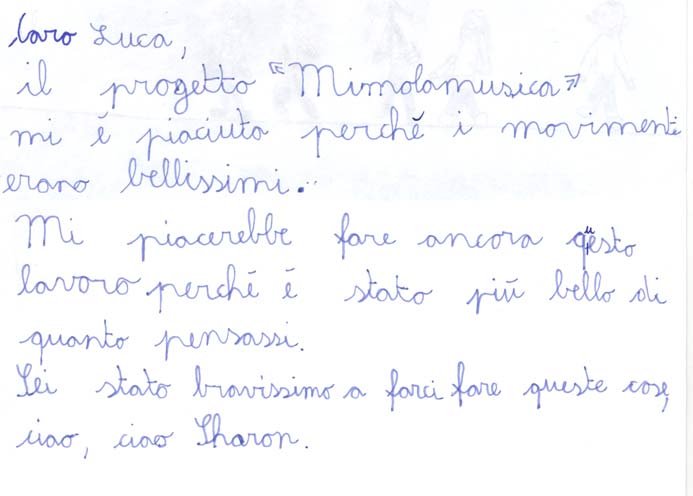 Caro Luca,
il progetto "Mimolamusica"
mi è piaciuta perchè i movimenti
erano bellissimi.
Mi piacerebbe fare ancora questo
lavoro perchè è stato più bello di
quanto pensassi.
Sei stato bravissimo a farci fare queste cose,
ciao, ciao Sharon.